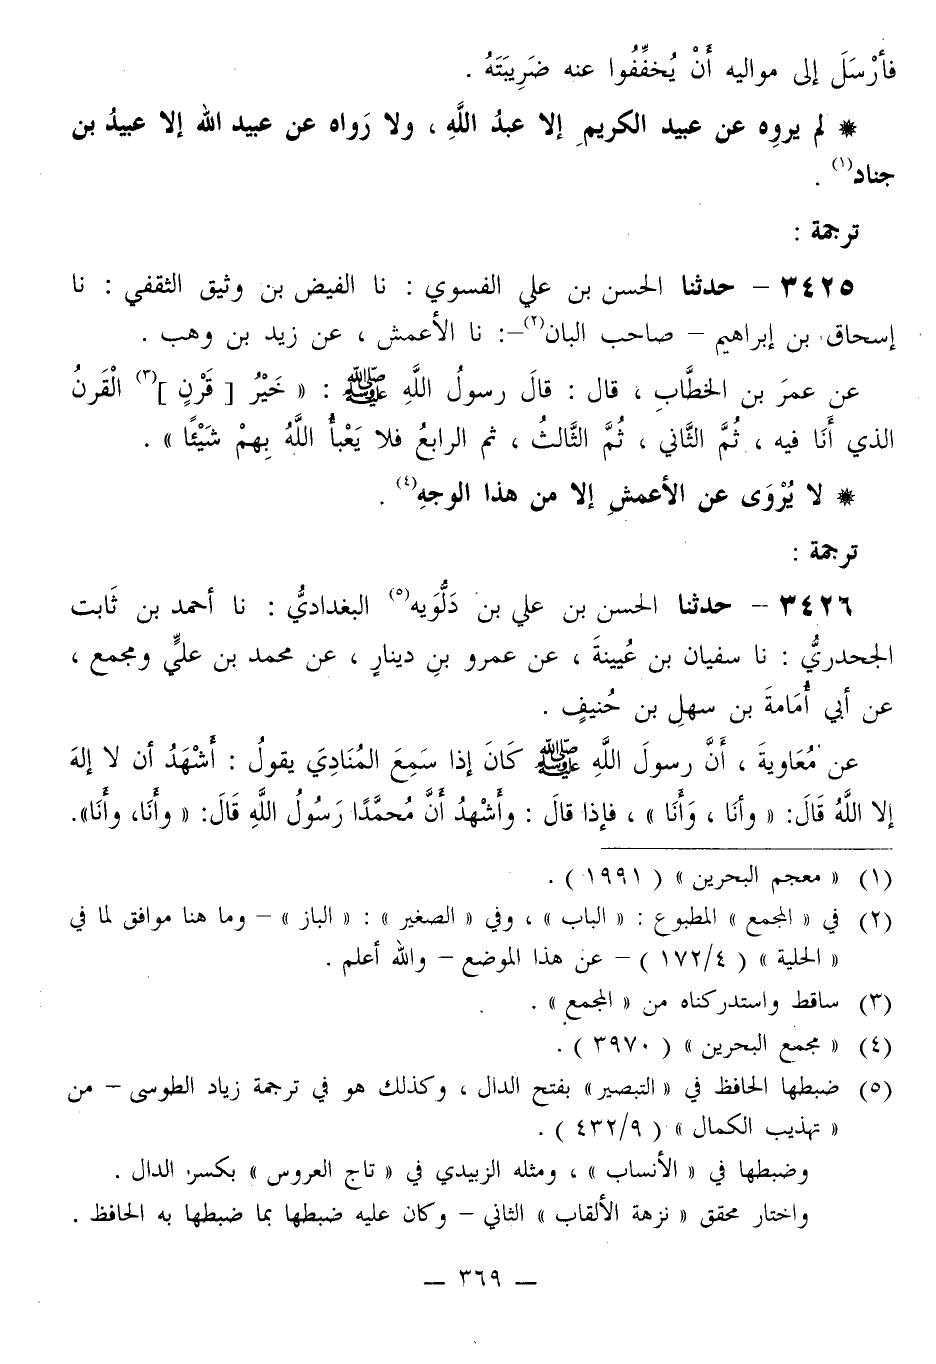 فأرْسَلَ إلى مواليه أَنْ يُخفِّفُوا عنه ضَرِيبَتَهُ .
* لم يروِه عن عبيد الكريمِ إلا عبدُ اللَّهِ ، ولا رَواه عن عبيد الله إلا عبيدُ بن
جناد(١) .
ترجمة :
٣٤٢٥ – حدثنا الحسن بن علي الفسوي : نا الفيض بن وثيق الثقفي : نا
إسحاق بن إبراهيم – صاحب البان(٢)–: نا الأعمش ، عن زيد بن وهب .
عن عمرَ بن الخطَّابِ ، قال : قالَ رسولُ اللَّهِ ﷺ : « خَيْرُ [ قَرْنٍ ](٣) الْقَرنُ
الذي أَنَا فيه ، ثُمَّ الثَّاني ، ثُمَّ الثَّالثُ ، ثم الرابعُ فلا يَعْبأُ اللَّهُ بِهمْ شَيْئًا » .
* لا يُرْوَى عن الأعمشِ إلا من هذا الوجهِ(٤) .
ترجمة :
٣٤٢٦ – حدثنا الحسن بن علي بن دَلُّوَيه(٥) البغداديُّ : نا أحمد بن ثَابت
الجحدريُّ : نا سفيان بن عُيينةَ ، عن عمرو بنِ دينارٍ ، عن محمد بن عليٍّ ومجمع ،
عن أبي أُمَامةَ بن سهلِ بن حُنيفٍ .
عن مُعَاويةَ ، أَنَّ رسولَ اللَّهِ ﷺ كَانَ إذا سَمِعَ المُنَادِيَ يقولُ : أَشْهَدُ أن لا إلهَ
إلا اللَّهُ قَالَ: « وأنَا ، وَأَنَا » ، فإذا قالَ : وأَشْهدُ أَنَّ مُحمَّدًا رَسُولُ اللَّهِ قَالَ: « وأَنَا، وأَنَا».
(١) « معجم البحرين » ( ١٩٩١ ) .
(٢) في « المجمع » المطبوع : « الباب » ، وفي « الصغير » : « الباز » – وما هنا موافق لما في
« الحلية » ( ١٧٢/٤ ) – عن هذا الموضع – والله أعلم .
(٣) ساقط واستدركناه من « المجمع » .
(٤) « مجمع البحرين » ( ٣٩٧٠ ) .
(٥) ضبطها الحافظ في « التبصير » بفتح الدال ، وكذلك هو في ترجمة زياد الطوسى – من
« تهذيب الكمال » ( ٤٣٢/٩ ) .
وضبطها في « الأنساب » ، ومثله الزبيدي في « تاج العروس » بكسر الدال .
واختار محقق « نزهة الألقاب » الثاني – وكان عليه ضبطها بما ضبطها به الحافظ .
— ٣٦٩ —